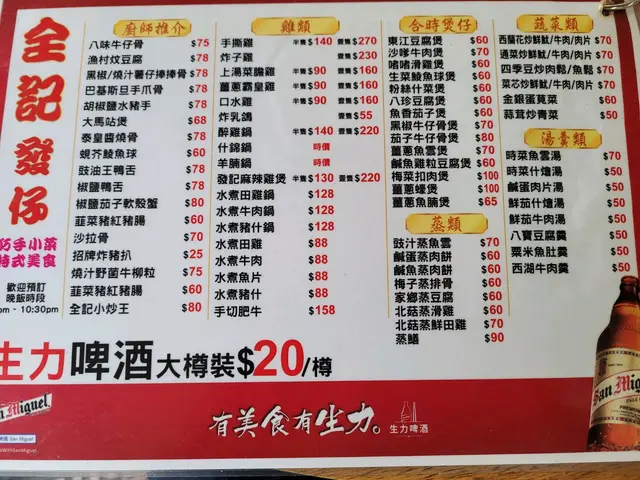 全記發仔
巧手小菜
特式美食
歡迎預訂
晚飯時段
pm - 10:30pm
廚師推介
八味牛仔骨 $75
漁村炆豆腐 $78
黑椒/燒汁薯仔捧捧骨 $78
巴基斯旦手爪骨 $78
胡椒鹽水豬手 $78
大馬站煲 $68
泰皇醬燒骨 $78
蜆芥鯪魚球 $60
豉油王鴨舌 $78
椒鹽鴨舌 $78
椒鹽茄子軟殼蟹 $80
韮菜豬紅豬腸 $60
沙拉骨 $70
招牌炸豬扒 $25
燒汁野菌牛柳粒 $75
韮菜豬紅豬腸 $60
全記小炒王 $80
雞類
手撕雞 半隻$140 壹隻$270
炸子雞 壹隻$230
上湯菜膽雞 半隻$90 壹隻$160
薑蔥霸皇雞 半隻$90 壹隻$160
口水雞 半隻$90 壹隻$160
炸乳鴿 壹隻$55
醉雞鍋 半隻$140 壹隻$220
什錦鍋 時價
羊腩鍋 時價
發記麻辣雞煲 半隻$130 壹隻$220
水煮田雞鍋 $128
水煮牛肉鍋 $128
水煮豬什鍋 $128
水煮田雞 $88
水煮牛肉 $88
水煮魚片 $88
水煮豬什 $88
手切肥牛 $158
合時煲仔
東江豆腐煲 $60
沙嗲牛肉煲 $70
啫啫滑雞煲 $60
生菜鯪魚球煲 $60
粉絲什菜煲 $60
八珍豆腐煲 $60
魚香茄子煲 $60
黑椒牛仔骨煲 $70
茄子牛仔骨煲 $80
薑蔥魚雲煲 $70
鹹魚雞粒豆腐煲 $60
梅菜扣肉煲 $100
薑蔥蠔煲 $100
薑蔥魚腩煲 $65
蒸類
豉汁蒸魚雲 $70
鹹蛋蒸肉餅 $60
鹹魚蒸肉餅 $60
梅子蒸排骨 $60
家鄉蒸豆腐 $60
北菇蒸滑雞 $60
北菇蒸鮮田雞 $70
蒸鱔 $90
蔬菜類
西蘭花炒鮮魷/牛肉/肉片 $70
通菜炒鮮魷/牛肉/肉片 $70
四季豆炒肉鬆/魚鬆 $70
菜芯炒鮮魷/牛肉/肉片 $70
金銀蛋莧菜 $60
蒜茸炒青菜 $50
湯羹類
時菜魚雲湯 $70
時菜什燴湯 $50
鹹蛋肉片湯 $50
鮮茄什燴湯 $50
鮮茄牛肉湯 $50
八寶豆腐羹 $50
粟米魚肚羹 $50
西湖牛肉羹 $50
生力啤酒大樽裝$20/樽
San Miguel
有美食有生力。
生力啤酒
San Miguel